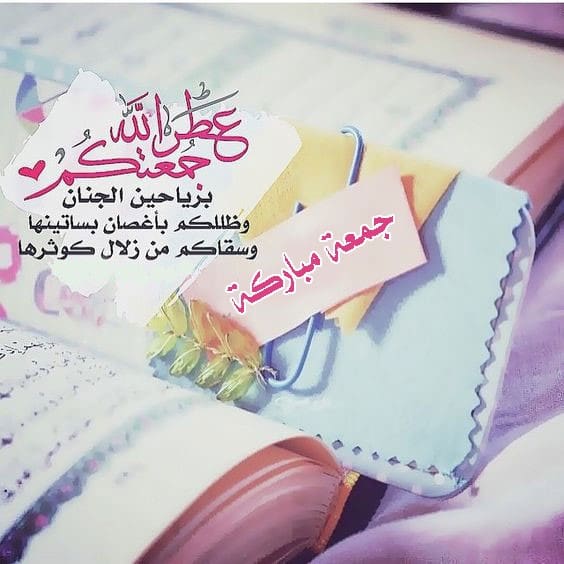 عطر الله
جمعتكم
بزياحين الجنان
وظللكم بأغصان بساتينها
وسقاكم من زلال كوثرها
جمعة مباركة